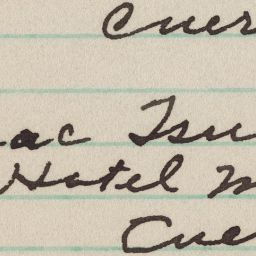 Cuer
ac Tsu
Hotel M
Cue